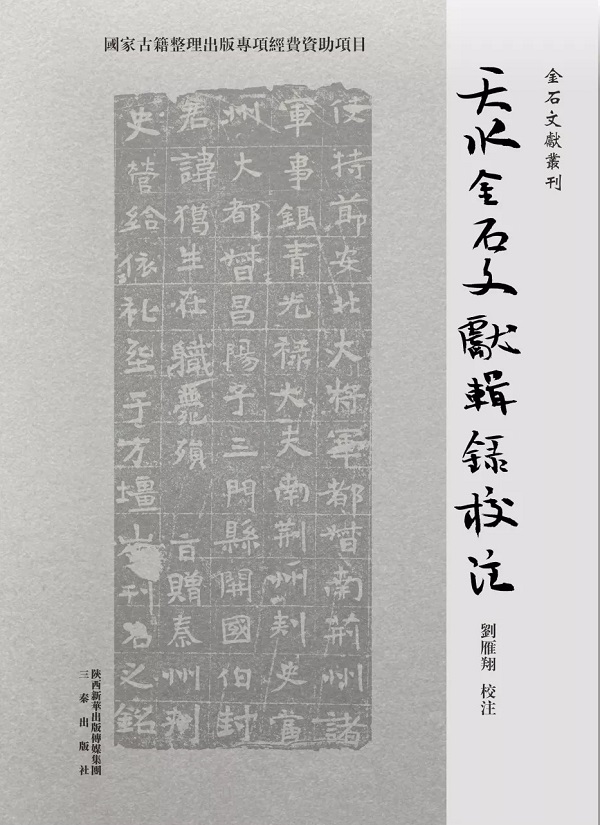 國家古籍整理出版專項經費資助項目
金石文獻叢刊
天水金石文獻輯錄校注
劉雁翔 校注
使持節安北大將軍都督南荊州諸
軍事銀青光祿大夫南荊州刺史
州大都督昌陽子三門縣開國伯封
君諱獦生在職薨殞 贈秦州刺
史營給依礼 于方壇 刊石之銘
陝西新華出版傳媒集團
三秦出版社